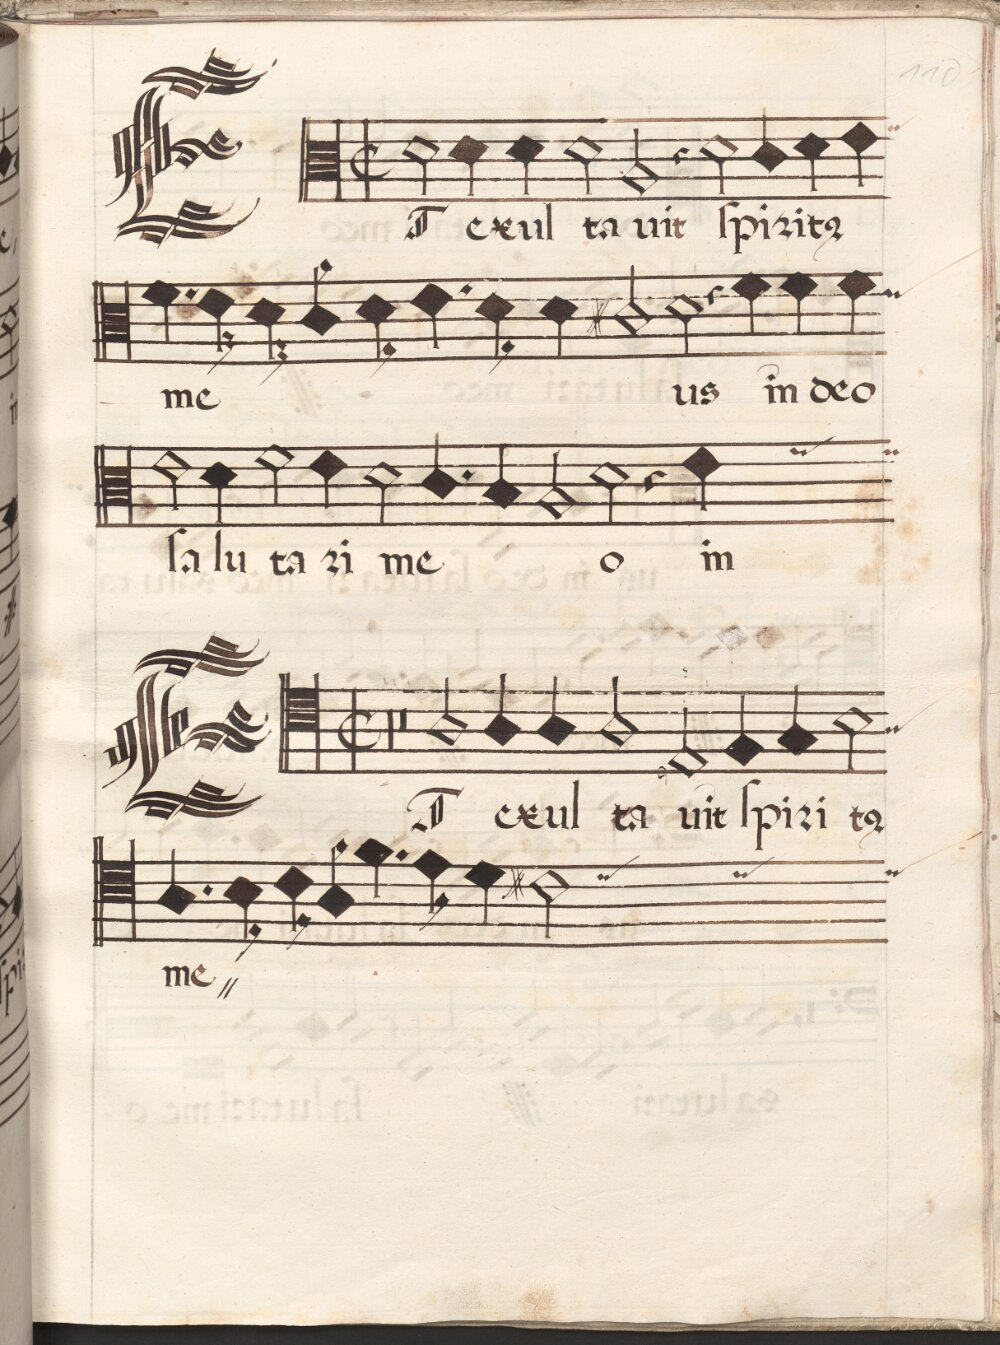 110
ET exul ta uit spiritꝰ
me us in deo
sa lu ta ri me o in
ET exul ta uit spiri tꝰ
me